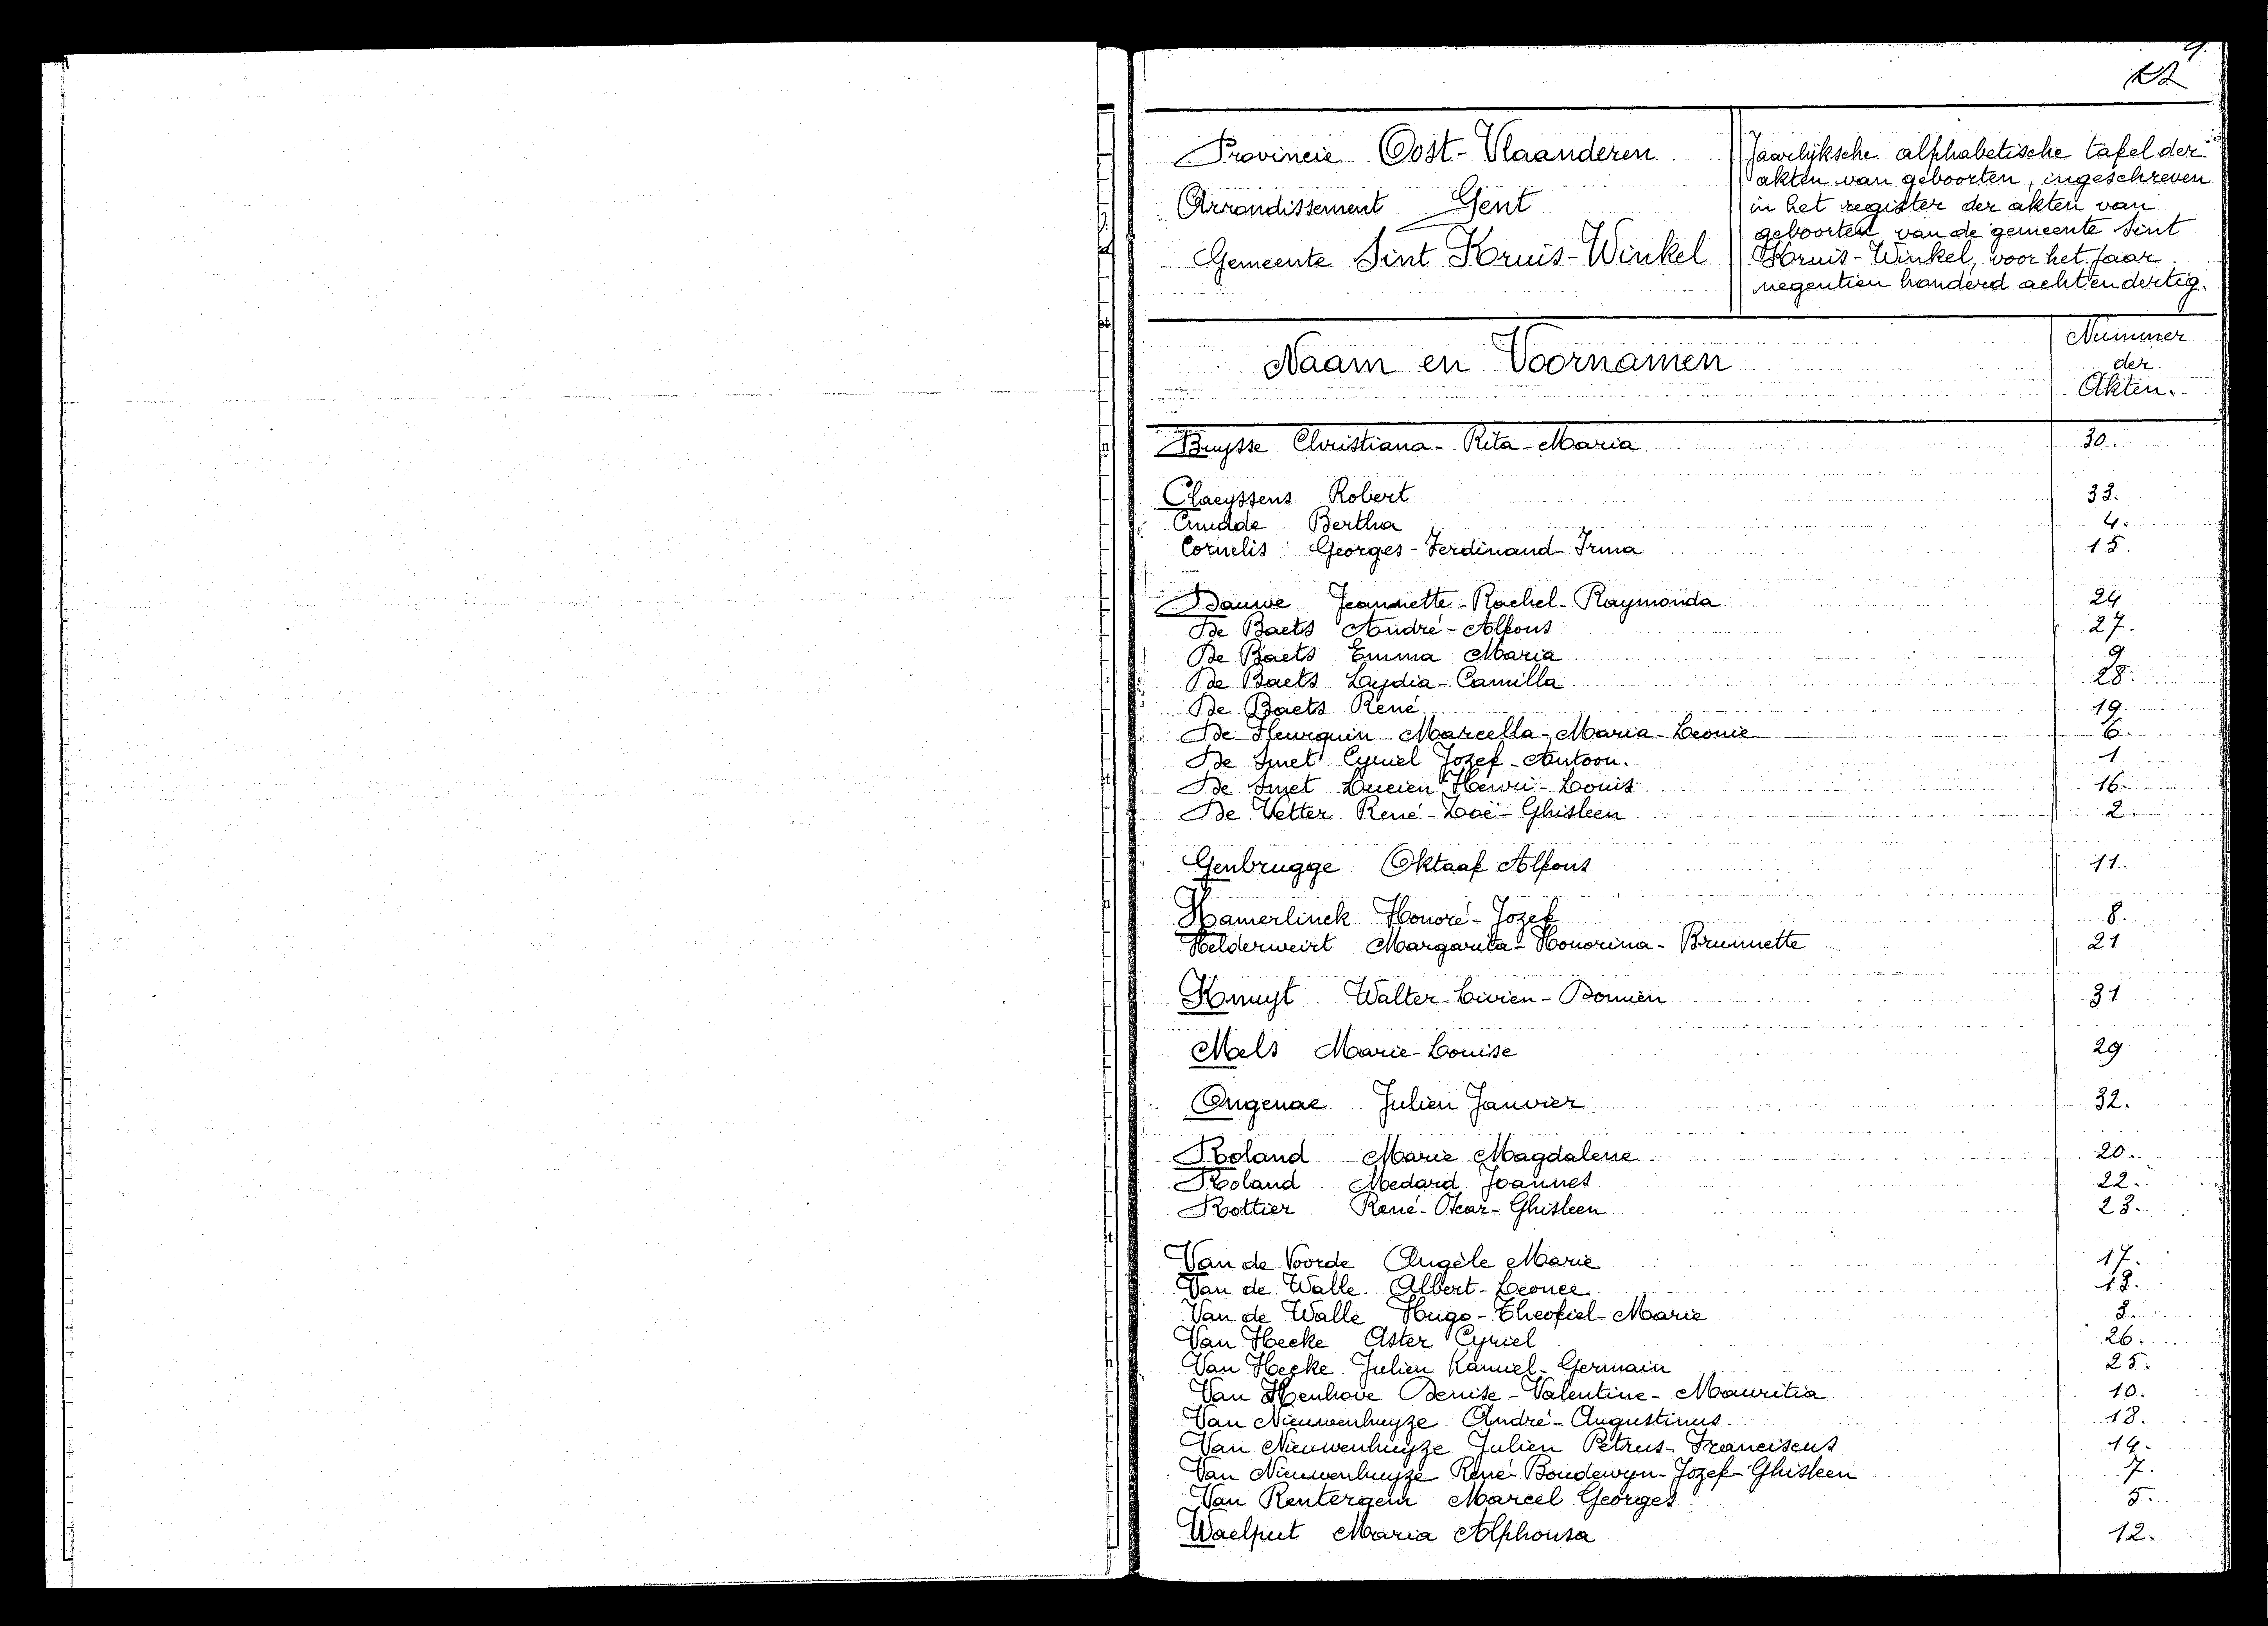 Provincie Oost-Vlaanderen
Arrondissement Gent
Gemeente Sint Kruis-Winkel
Jaarlijksche alphabetische tafel der
akten van geboorten, ingeschreven
in het register der akten van
geboorten van de gemeente Sint
Kruis-Winkel, voor het jaar
negentien honderd achtendertig.
Naam en Voornamen
Nummer
der
Akten.
Buysse Christiana-Rita-Maria 30.
Claeyssens Robert 33.
Cnudde Bertha 4.
Cornelis Georges-Ferdinand-Irma 15.
Dauwe Jeannette-Rachel-Raymonda 24
De Baets André-Alfons 27.
De Baets Emma Maria 9
De Baets Laydia-Camilla 28.
De Baets René 19.
De Fleurquin Marcella-Maria-Leonie 6.
De Smet Cyriel Jozef-Antoon. 1
De Smet Lucien Henri-Louis 16.
De Vetter René-Zoë-Ghisleen 2
Genbrugge Oktaaf Alfons 11.
Hamerlinck Honoré-Jozef 8.
Helderweirt Margarita-Honorina-Brunnette 21
Knuyt Walter-Livien-Domien 31
Mels Marie-Louise 29
Ongenae Julien Janvier 32.
Roland Marie Magdalene 20.
Roland Medard Joannes 22.
Rottier René-Oscar-Ghisleen 23.
Van de Voorde Angèle Marie 17.
Van de Walle Albert-Leonce 13.
Van de Walle Hugo-Theofiel-Marie 3.
Van Hecke Aster Cyriel 26.
Van Hecke Julien Kamiel-Germain 25.
Van Henhove Denise-Valentine-Mauritia 10.
Van Nieuwenhuyze André-Augustinus. 18.
Van Nieuwenhuyze Julien Petrus-Franciscus 14.
Van Nieuwenhuyze René Boudewyn-Jozef-Ghisleen 7.
Van Rentergem Marcel Georges 5.
Waelput Maria Alphonsa 12.